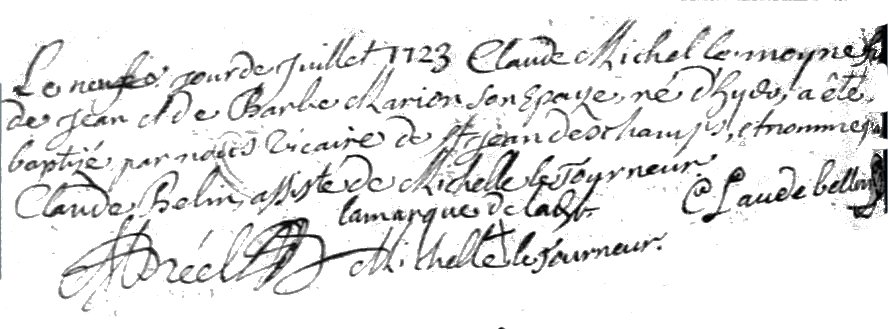 Le neufe jour de juillet 1723 Claude Michel le moyne fils
de jean et de Barbe Marion son Epouze, né d'hyer, a été
baptisé par nous Vicaire de St jean des champs, et nommé par
Claude Belin, assisté de Michelle le Tourneur.
la marque de la Claude bellin
Michelle le Tourneur.